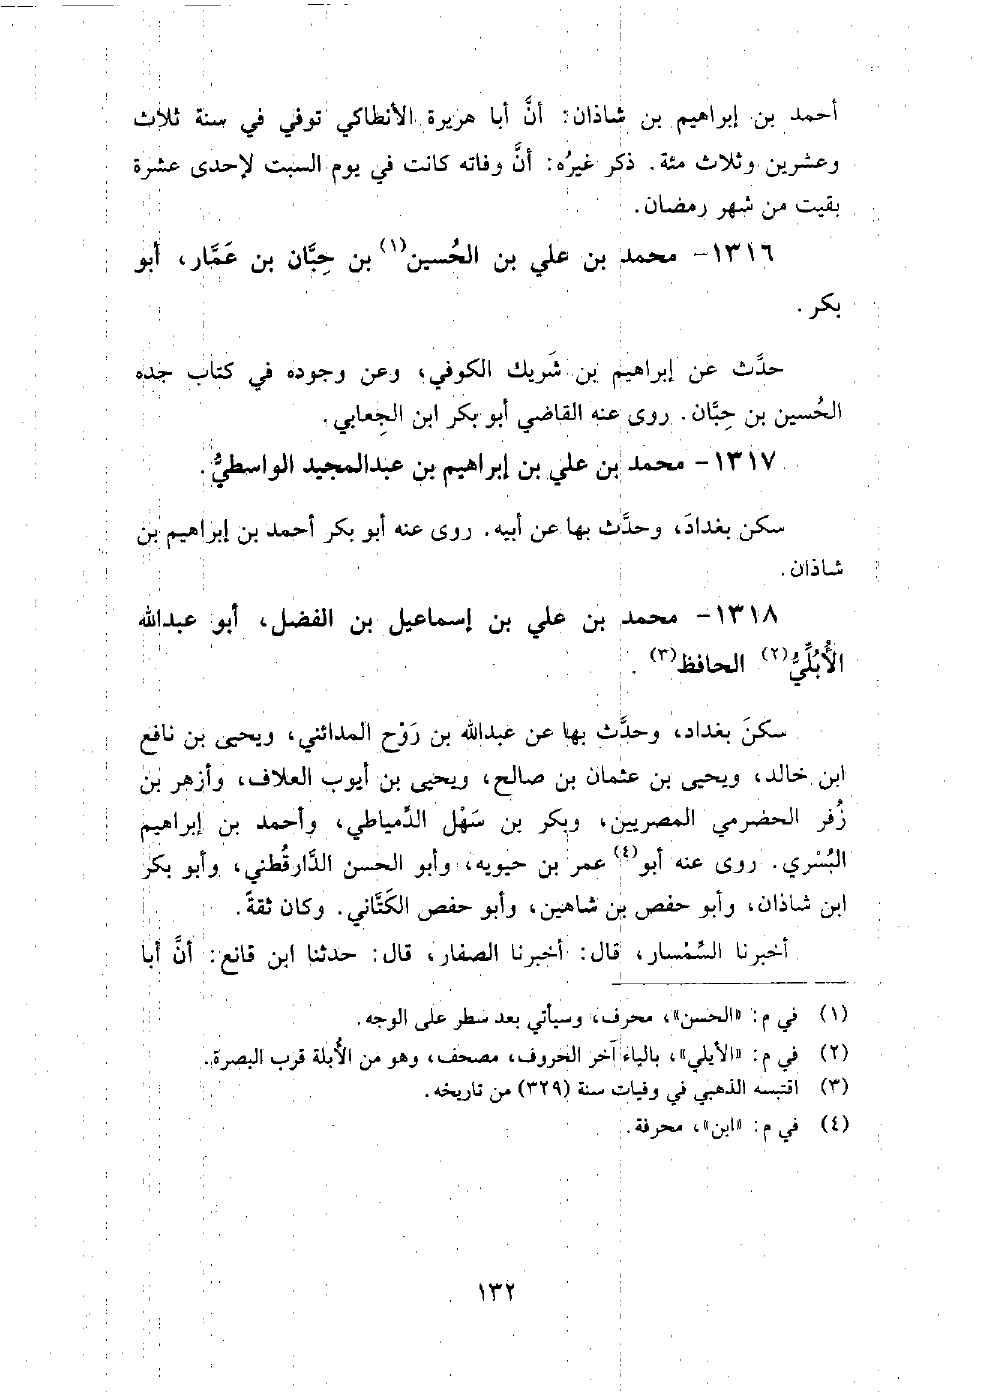 أحمد بن إبراهيم بن شاذان: أنَّ أبا هريرة الأنطاكي توفي في سنة ثلاث
وعشرين وثلاث مئة. ذكر غيرُه: أنَّ وفاته كانت في يوم السبت لإحدى عشرة
بقيت من شهر رمضان.
١٣١٦- محمد بن علي بن الحُسين(١) بن حِبَّان بن عَمَّار، أبو
بكر.
حدَّث عن إبراهيم بن شَريك الكوفي، وعن وجوده في كتاب جده
الحُسين بن حِبَّان. روى عنه القاضي أبو بكر ابن الجِعابي.
١٣١٧- محمد بن علي بن إبراهيم بن عبدالمجيد الواسطيُّ.
سكن بغدادَ، وحدَّث بها عن أبيه. روى عنه أبو بكر أحمد بن إبراهيم بن
شاذان.
١٣١٨- محمد بن علي بن إسماعيل بن الفضل، أبو عبدالله
الأُبُلِّيُّ(٢) الحافظ(٣).
سكنَ بغداد، وحدَّث بها عن عبدالله بن رَوْح المدائني، ويحيى بن نافع
ابن خالد، ويحيى بن عثمان بن صالح، ويحيى بن أيوب العلاف، وأزهر بن
زُفر الحضرمي المصريين، وبكر بن سَهْل الدِّمياطي، وأحمد بن إبراهيم
البُسْري. روى عنه أبو(٤) عمر بن حيويه، وأبو الحسن الدَّارقُطني، وأبو بكر
ابن شاذان، وأبو حفص بن شاهين، وأبو حفص الكَتَّاني. وكان ثقةً.
أخبرنا السِّمْسار، قال: أخبرنا الصفار، قال: حدثنا ابن قانع: أنَّ أبا
(١) في م: «الحسن»، محرف، وسيأتي بعد سطر على الوجه.
(٢) في م: «الأيلي»، بالياء آخر الحروف، مصحف، وهو من الأُبلة قرب البصرة.
(٣) اقتبسه الذهبي في وفيات سنة (٣٢٩) من تاريخه.
(٤) في م: «ابن»، محرفة.
١٣٢